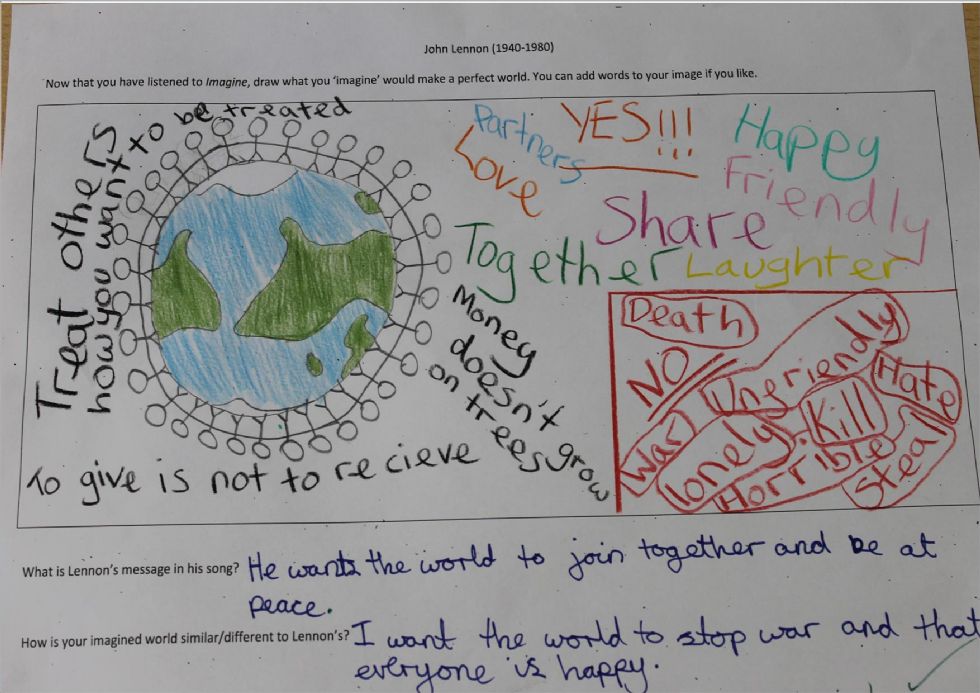 John Lennon (1940-1980)
Now that you have listened to Imagine, draw what you 'imagine' would make a perfect world. You can add words to your image if you like.
Treat others
how you want to be treated
Partners
YES!!!
Happy
Love
Friendly
Share
Together
Laughter
Money
doesn't grow
on trees
To give is not to recieve
Death
NO
Unfriendly
Hate
War
lonely
Kill
Horrible
Steal
What is Lennon's message in his song? He wants the world to join together and be at
peace.
How is your imagined world similar/different to Lennon's? I want the world to stop war and that
everyone is happy.